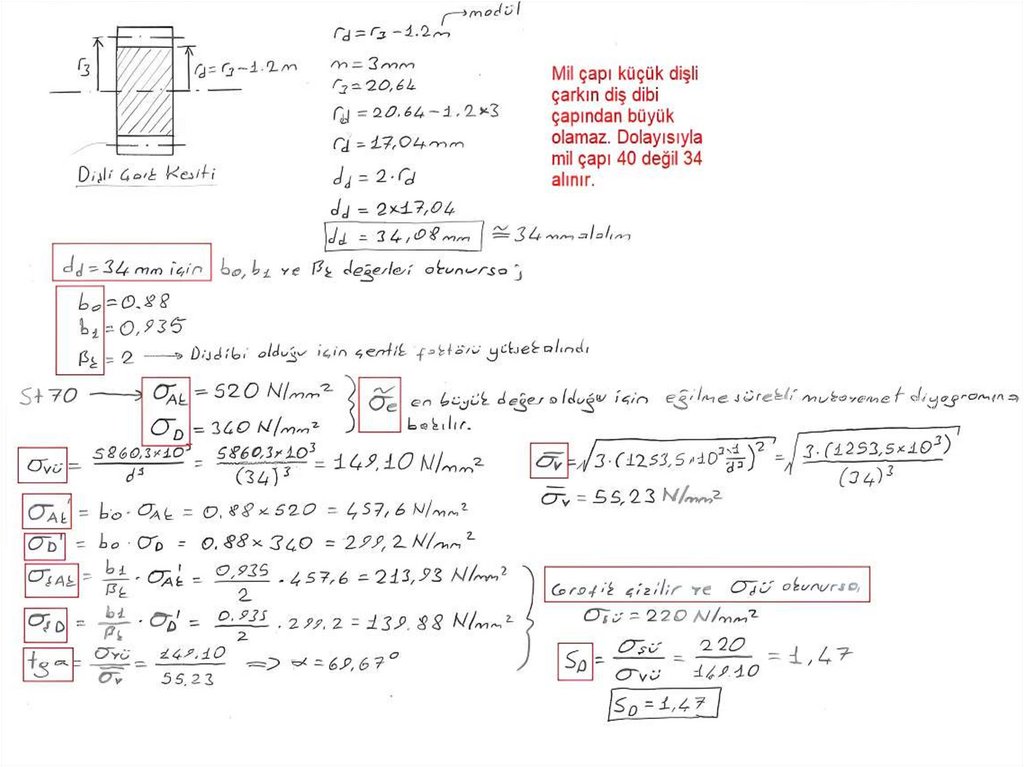 rd = r3 - 1.2m → modül
m = 3mm
r3 = 20,64
rd = 20.64 - 1.2×3
rd = 17,04mm
dd = 2·rd
dd = 2×17,04
dd = 34,08mm ≅ 34 mm alalım
r3
rd = r3 - 1.2m
Dişli Çark Kesiti
Mil çapı küçük dişli
çarkın diş dibi
çapından büyük
olamaz. Dolayısıyla
mil çapı 40 değil 34
alınır.
dd = 34 mm için b0, b1 ve βk değerleri okunursa;
b0 = 0.88
b1 = 0,935
βk = 2 → Dişdibi olduğu için çentik faktörü yüksek alındı
St 70 → σAk = 520 N/mm²
σD = 340 N/mm²
σ̃e en büyük değer olduğu için eğilme sürekli mukavemet diyagramına
bakılır.
σvü = 5860,3×10³ / d³ = 5860,3×10³ / (34)³ = 149,10 N/mm²
σ̄v = √(3·(1253,5×10³×1/d³)²) = √(3·(1253,5×10³) / (34)³)
σ̄v = 55,23 N/mm²
σAk' = b0 · σAk = 0.88 × 520 = 457,6 N/mm²
σD' = b0 · σD = 0.88 × 340 = 299,2 N/mm²
σşAk = b1/βk · σAk' = 0,935/2 · 457,6 = 213,93 N/mm²
σşD = b1/βk · σD' = 0.935/2 · 299,2 = 139.88 N/mm²
tgα = σvü/σ̄v = 149.10/55,23 ⟹ α = 69,67°
Grafik çizilir ve σşü okunursa,
σşü = 220 N/mm²
SD = σşü/σvü = 220/149.10 = 1,47
SD = 1,47